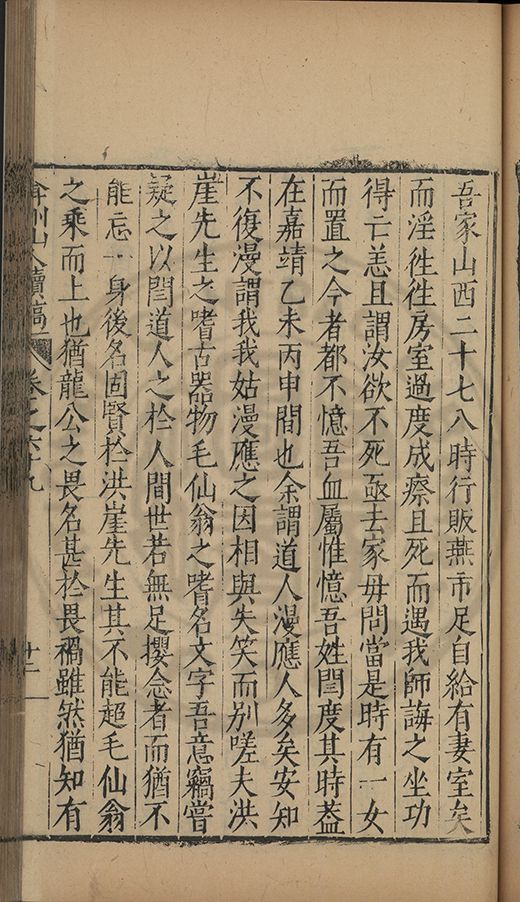 吾家山西二十七八時行販燕市足自給有妻室矣
而淫徃徃房室過度成瘵且死而遇我師誨之坐功
得亡恙且謂汝欲不死亟去家毋問當是時有一女
而置之今者都不憶吾血屬惟憶吾姓閻度其時葢
在嘉靖乙未丙申間也余謂道人漫應人多矣安知
不復漫謂我我姑漫應之因相與失笑而别嗟夫洪
崖先生之嗜古器物毛仙翁之嗜名文字吾意竊嘗
疑之以閻道人之於人間世若無足攖念者而猶不
能忘一身後名固賢於洪崖先生其不能超毛仙翁
之乘而上也猶龍公之畏名甚於畏禍雖然猶知有
弇州山人續稿 卷之六十九 十二